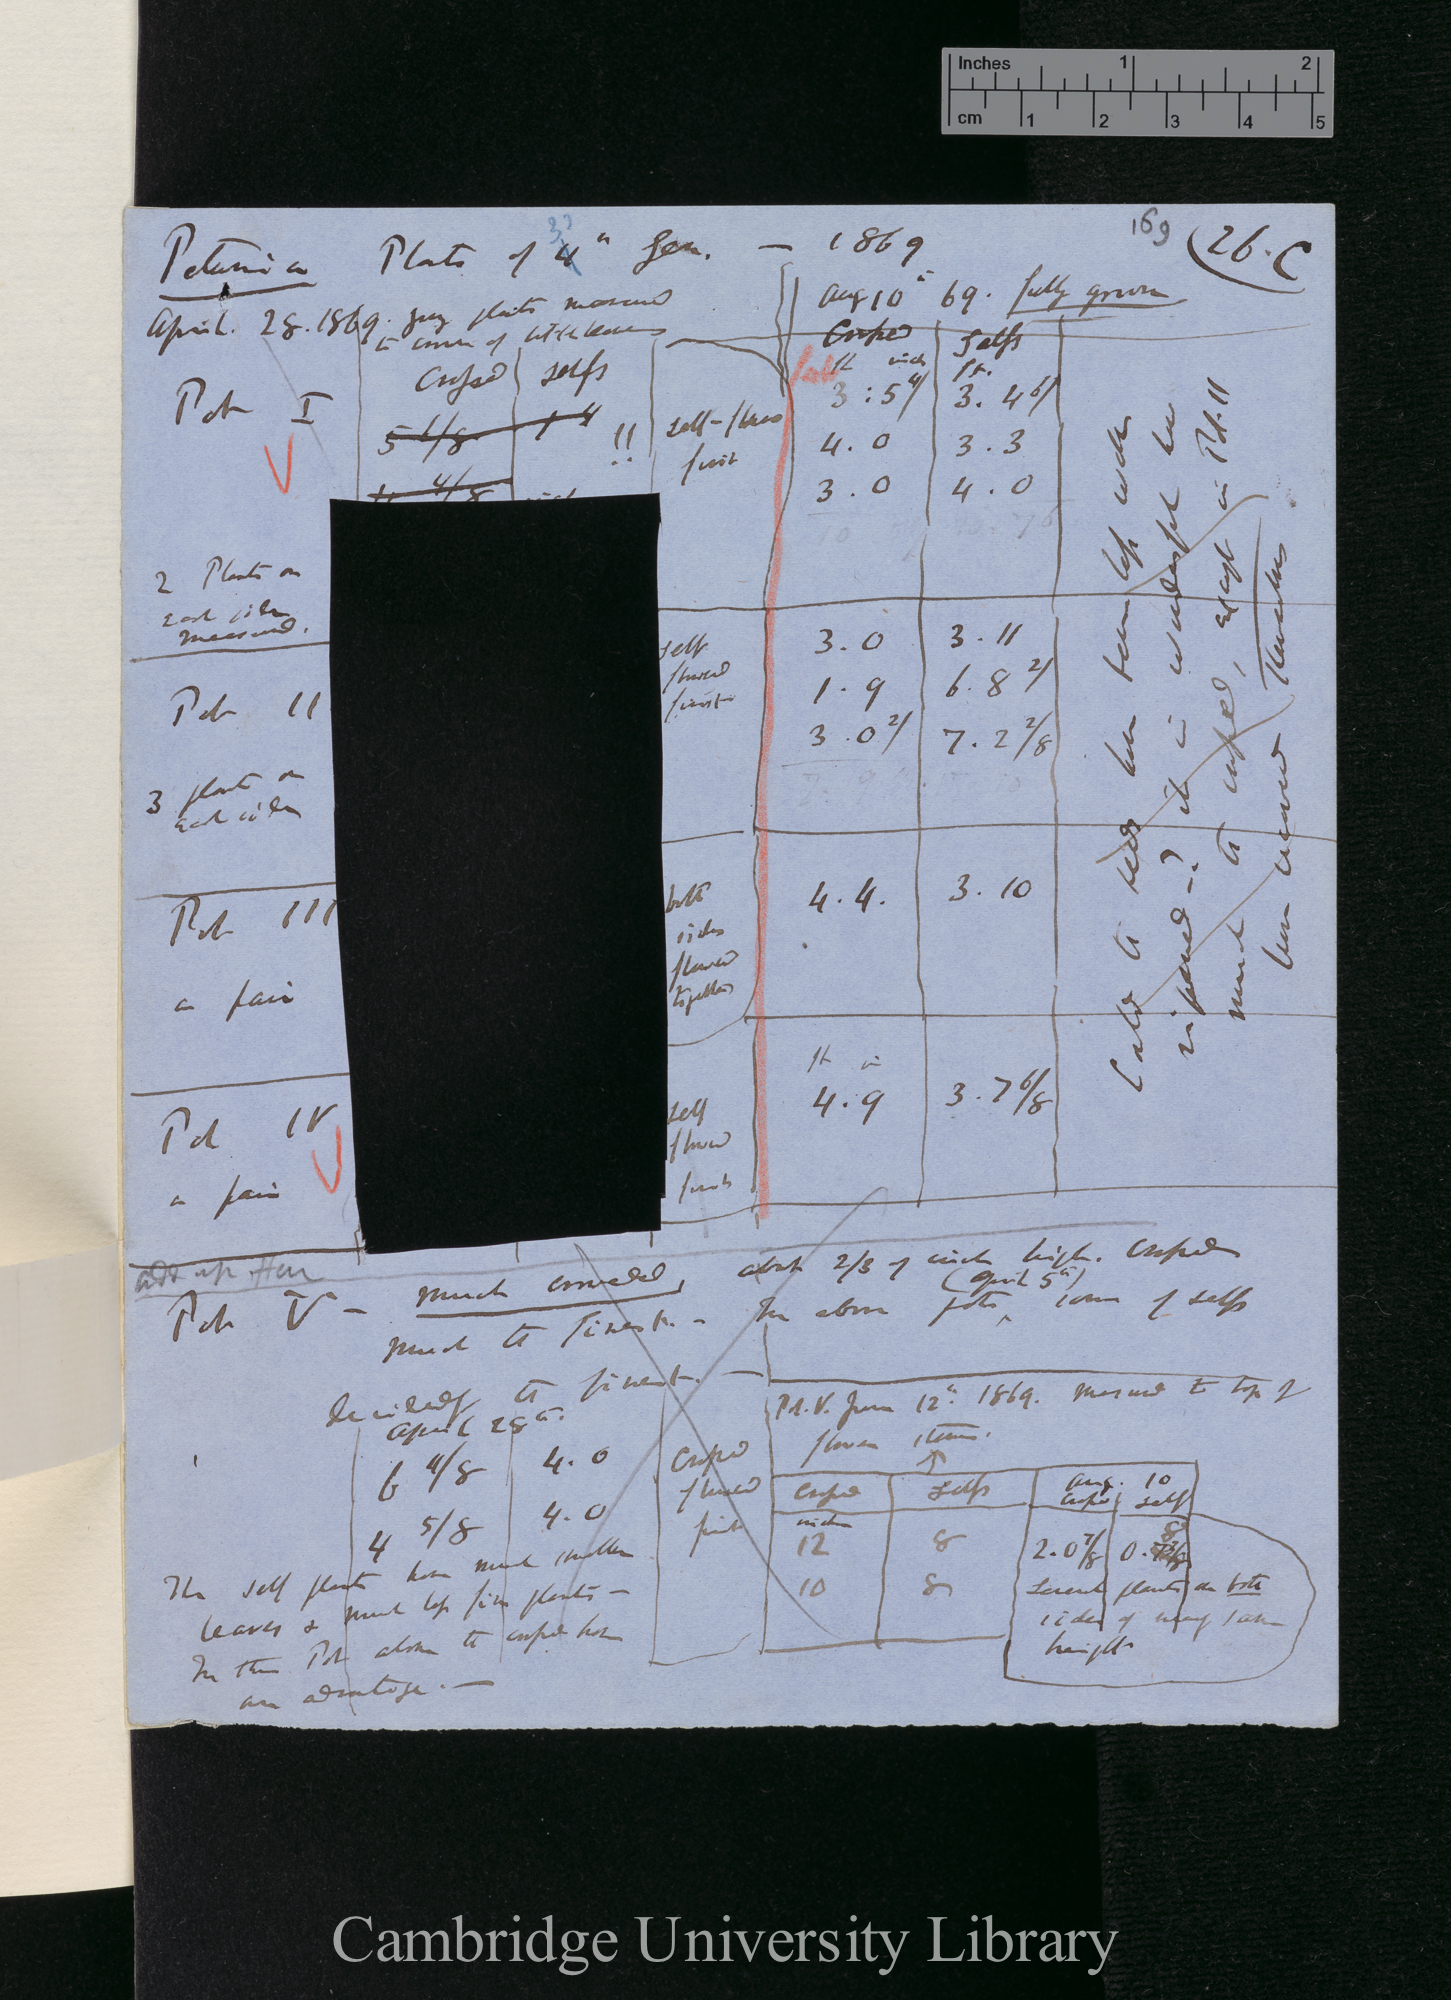 Inches 1 2
cm 1 2 3 4 5
169
26. C
Petunia Plants of 4th Gen. — 1869
3d
April. 28. 1869. plants measured
to of
Aug 10th 69. fully grown
Crossed Selfs
Crossed Selfs
ft inch ft.
Pot I
5 1/8
4/8
!!
self-flowered
first
3 : 5 4/ 3. 4 6/
4. 0 3. 3
3. 0 4. 0
2 Plants on
each side
measured.
Pot II
self
flowered
first
3. 0 3. 11
1. 9 6. 8 2/
3. 0 2/ 7. 2 2/8
3 plants on
each side
Pot III
a pair
both
sides
flowered
together
4. 4. 3. 10
Pot IV
a pair
self
flowered
first
ft in
4. 9 3. 7 6/8
Could the seeds have been
? it is wonderful how
much the crossed, except in Pot II
have Themselves
add up Here
Pot V — much crowded, about 2/3 of inch high. Crossed
(April 5th)
much the finest. — In above pots, some of selfs
decidedly the finest. —
April 28th.
6 4/8 4. 0
4 5/8 4. 0
Crossed
flowered
first
Pot. V. June 12th 1869. Measured to top of
flower stems.
Crossed Selfs Aug. 10
Crossed Self
inches
12 8 2. 0 7/8 0.
10 8
Several plants on both
sides of very same
height
The self plants have much smaller
leaves & much less fine plants —
In this Pot alone the crossed have
an advantage. —
Cambridge University Library